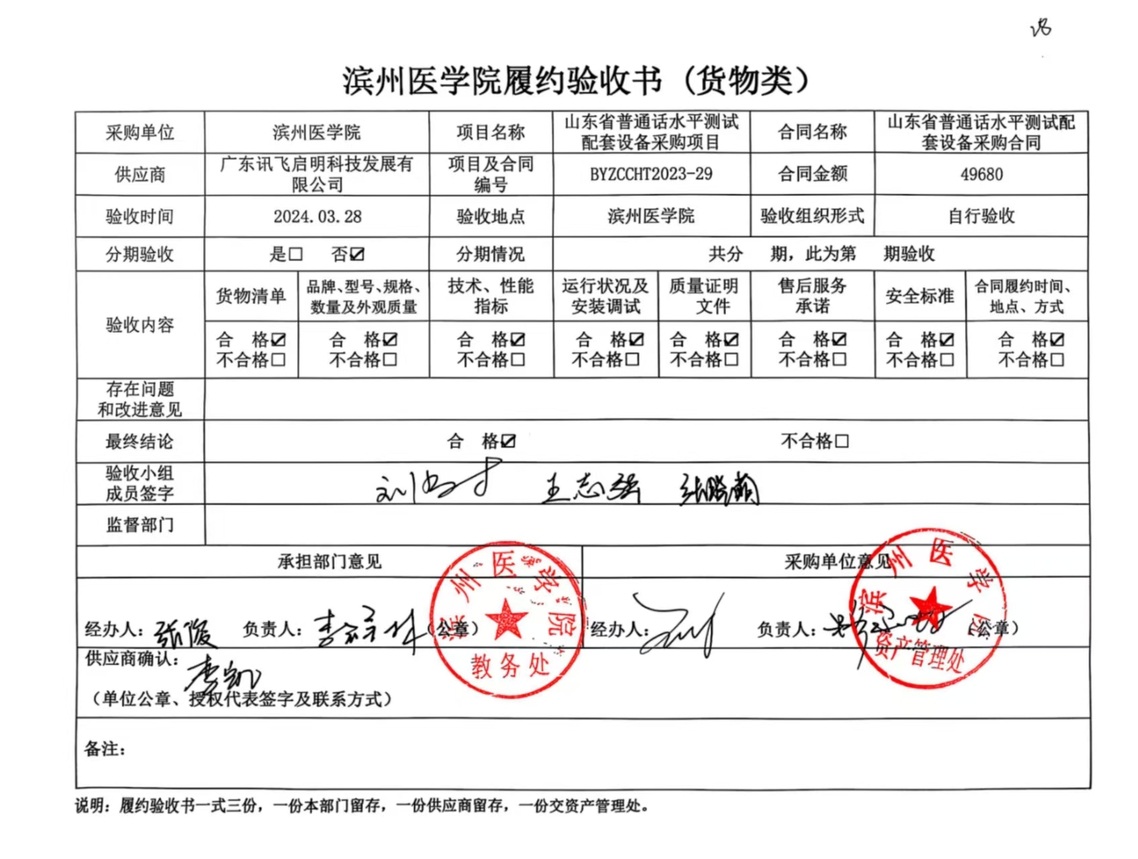 滨州医学院履约验收书（货物类）
采购单位 滨州医学院 项目名称 山东省普通话水平测试配套设备采购项目 合同名称 山东省普通话水平测试配套设备采购合同
供应商 广东讯飞启明科技发展有限公司 项目及合同编号 BYZCCHT2023-29 合同金额 49680
验收时间 2024.03.28 验收地点 滨州医学院 验收组织形式 自行验收
分期验收 是☐ 否☑ 分期情况 共分 期，此为第 期验收
验收内容
货物清单 品牌、型号、规格、数量及外观质量 技术、性能指标 运行状况及安装调试 质量证明文件 售后服务承诺 安全标准 合同履约时间、地点、方式
合 格☑ 合 格☑ 合 格☑ 合 格☑ 合 格☑ 合 格☑ 合 格☑ 合 格☑
不合格☐ 不合格☐ 不合格☐ 不合格☐ 不合格☐ 不合格☐ 不合格☐ 不合格☐
存在问题和改进意见
最终结论 合 格☑ 不合格☐
验收小组成员签字 王志强 张晓萌
监督部门
承担部门意见 采购单位意见
经办人：张俊 负责人： （公章） 经办人： 负责人： （公章）
滨州医学院
教务处
滨州医学院
资产管理处
供应商确认：李凯
（单位公章、授权代表签字及联系方式）
备注：
说明：履约验收书一式三份，一份本部门留存，一份供应商留存，一份交资产管理处。